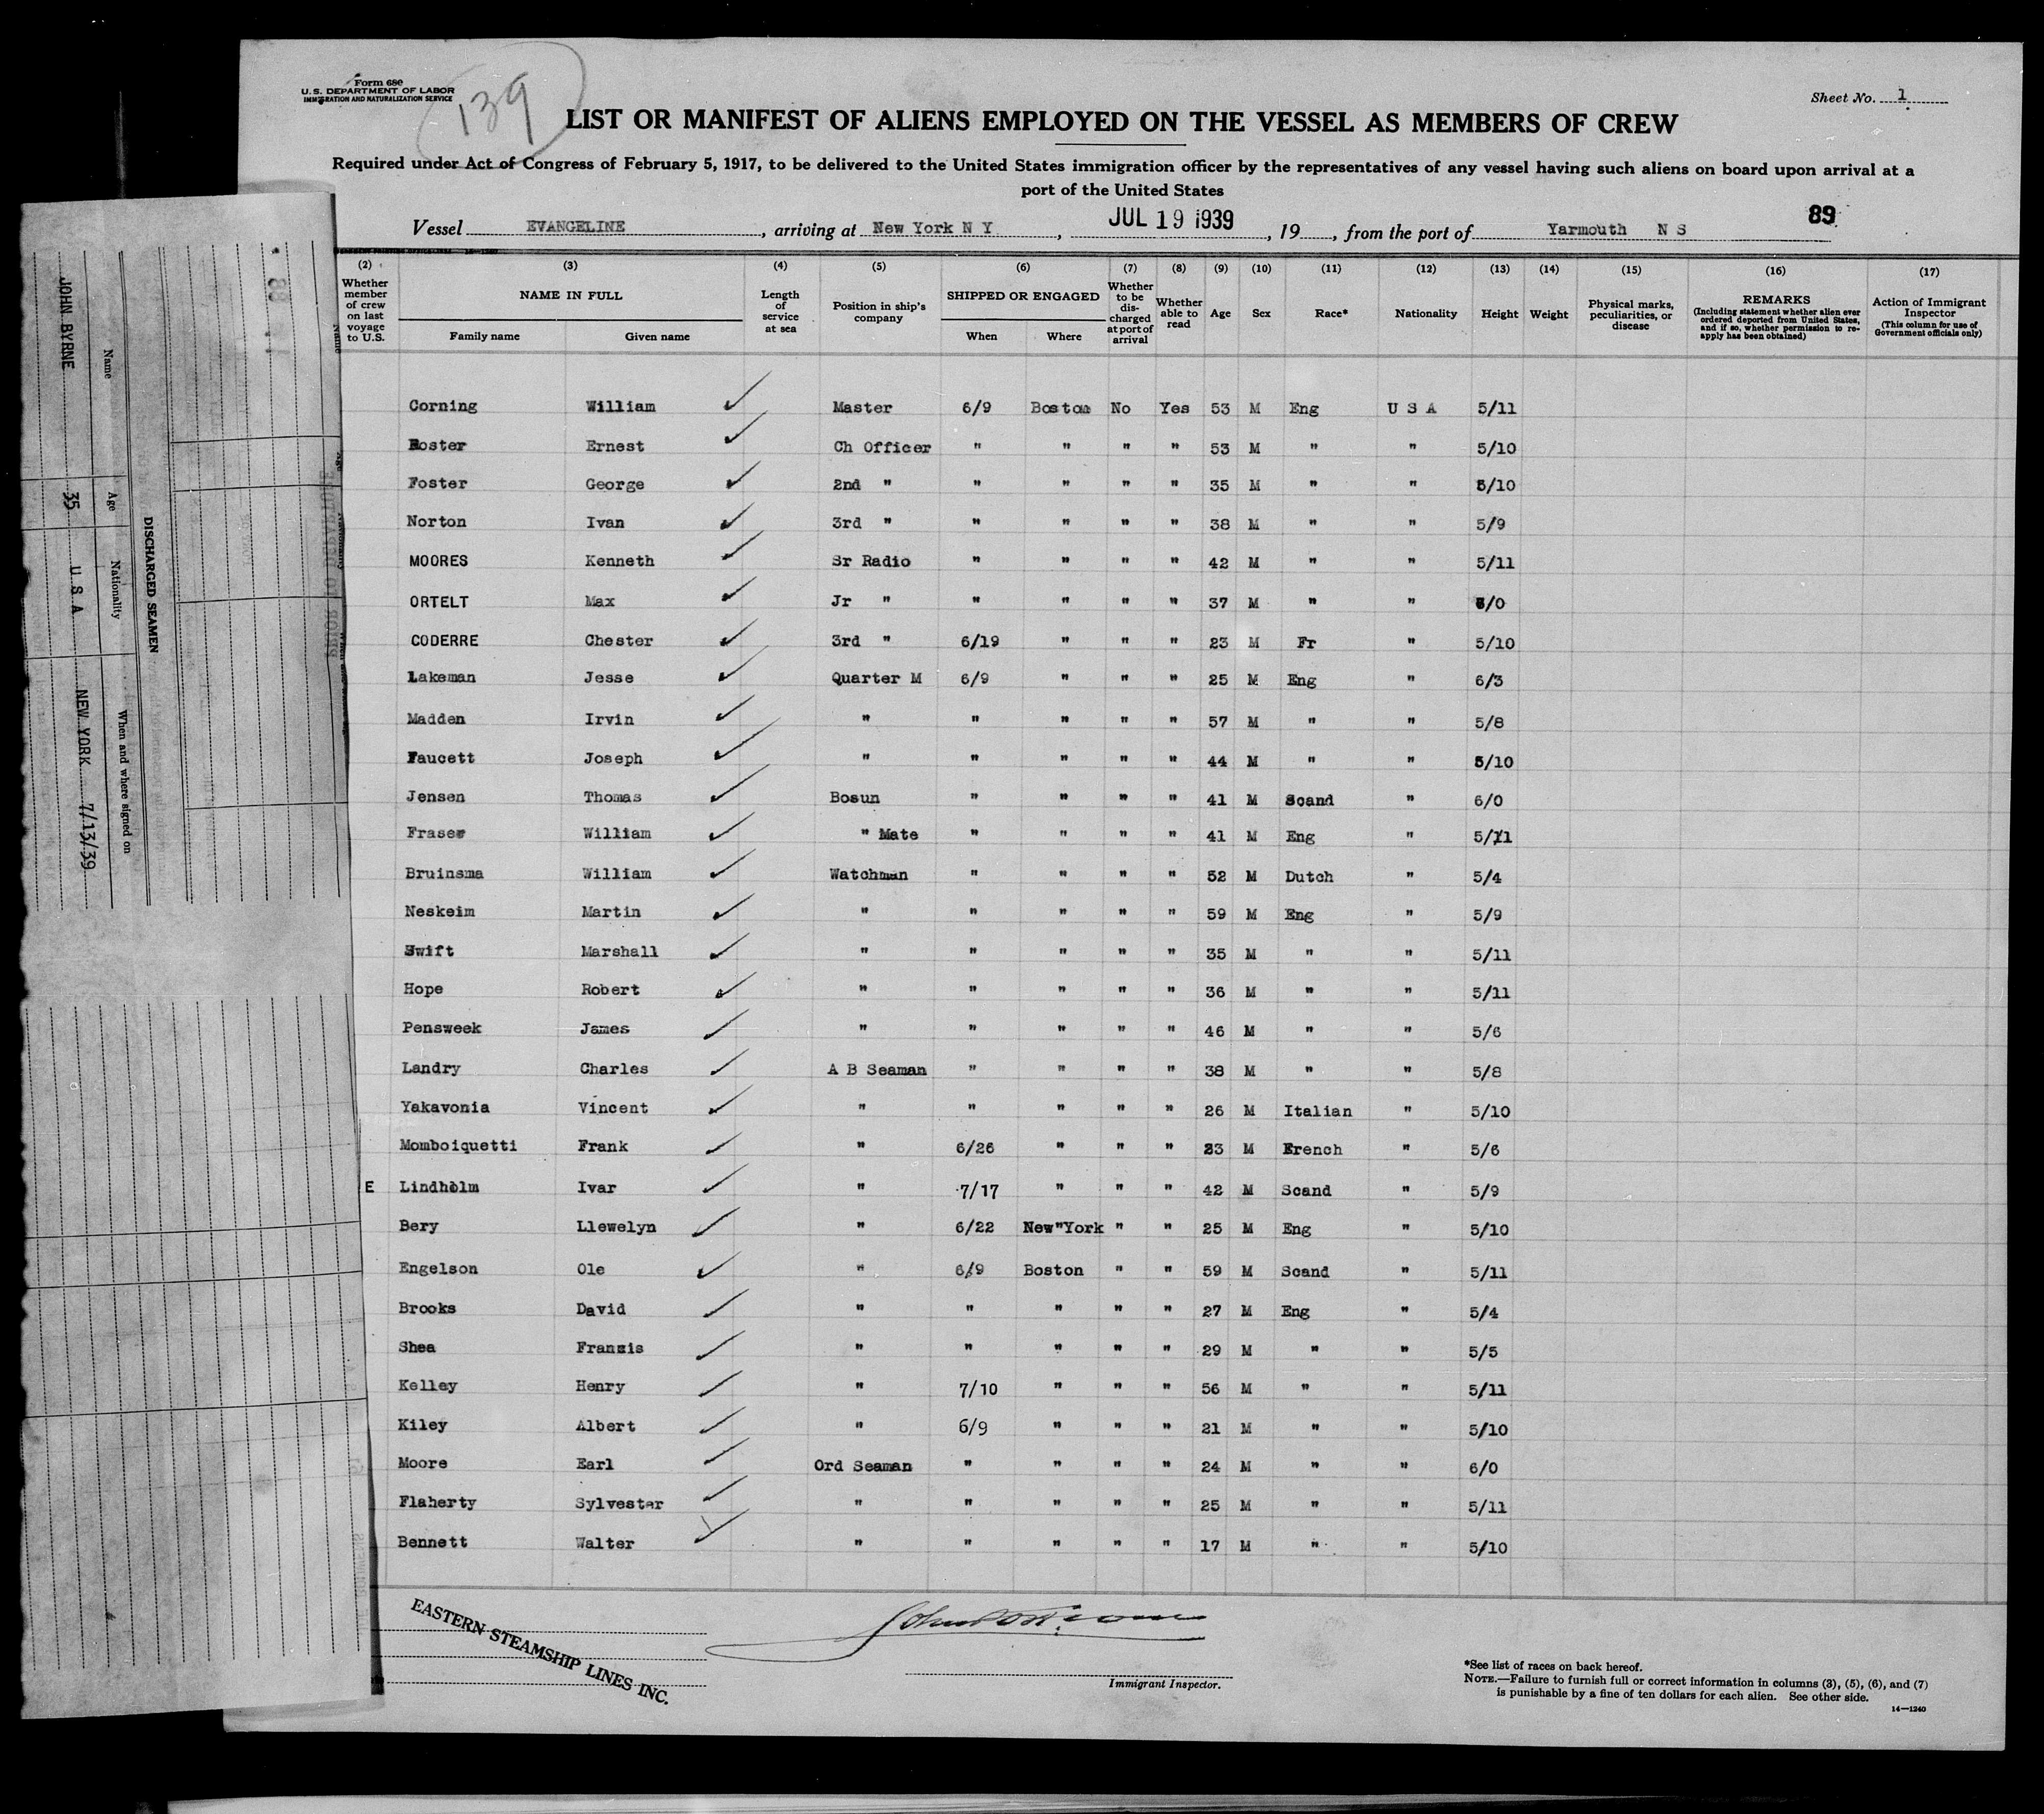 139
Form 680
U.S. DEPARTMENT OF LABOR
IMMIGRATION AND NATURALIZATION SERVICE
Sheet No. 1
LIST OR MANIFEST OF ALIENS EMPLOYED ON THE VESSEL AS MEMBERS OF CREW
Required under Act of Congress of February 5, 1917, to be delivered to the United States immigration officer by the representatives of any vessel having such aliens on board upon arrival at a
port of the United States
89
Vessel EVANGELINE, arriving at New York N Y, JUL 19 1939, 19, from the port of Yarmouth N S
(2) (3) (4) (5) (6) (7) (8) (9) (10) (11) (12) (13) (14) (15) (16) (17)
Whether member of crew on last voyage to U.S. NAME IN FULL Family name Given name Length of service at sea Position in ship's company SHIPPED OR ENGAGED When Where Whether to be discharged at port of arrival Whether able to read Age Sex Race* Nationality Height Weight Physical marks, peculiarities, or disease REMARKS (Including statement whether alien ever ordered deported from United States, and if so, whether permission to re-apply has been obtained) Action of Immigrant Inspector (This column for use of Government officials only)
Corning William Master 6/9 Boston No Yes 53 M Eng U S A 5/11
Roster Ernest Ch Officer " " " " 53 M " " 5/10
Foster George 2nd " " " " " 35 M " " 5/10
Norton Ivan 3rd " " " " " 38 M " " 5/9
MOORES Kenneth Sr Radio " " " " 42 M " " 5/11
ORTELT Max Jr " " " " " 37 M " " 6/0
CODERRE Chester 3rd " 6/19 " " " 23 M Fr " 5/10
Lakeman Jesse Quarter M 6/9 " " " 25 M Eng " 6/3
Madden Irvin " " " " " 57 M " " 5/8
Faucett Joseph " " " " " 44 M " " 5/10
Jensen Thomas Bosun " " " " 41 M Scand " 6/0
Fraser William " Mate " " " " 41 M Eng " 5/11
Bruinsma William Watchman " " " " 52 M Dutch " 5/4
Neskeim Martin " " " " " 59 M Eng " 5/9
Swift Marshall " " " " " 35 M " " 5/11
Hope Robert " " " " " 36 M " " 5/11
Pensweek James " " " " " 46 M " " 5/6
Landry Charles A B Seaman " " " " 38 M " " 5/8
Yakavonia Vincent " " " " " 26 M Italian " 5/10
Momboiquetti Frank " 6/26 " " " 23 M French " 5/6
E Lindholm Ivar " 7/17 " " " 42 M Scand " 5/9
Bery Llewelyn " 6/22 New"York " " 25 M Eng " 5/10
Engelson Ole " 6/9 Boston " " 59 M Scand " 5/11
Brooks David " " " " " 27 M Eng " 5/4
Shea Francis " " " " " 29 M " " 5/5
Kelley Henry " 7/10 " " " 56 M " " 5/11
Kiley Albert " 6/9 " " " 21 M " " 5/10
Moore Earl Ord Seaman " " " " 24 M " " 6/0
Flaherty Sylvester " " " " " 25 M " " 5/11
Bennett Walter " " " " " 17 M " " 5/10
EASTERN STEAMSHIP LINES INC.
Immigrant Inspector.
*See list of races on back hereof.
NOTE.—Failure to furnish full or correct information in columns (3), (5), (6), and (7)
is punishable by a fine of ten dollars for each alien. See other side.
14—1240
DISCHARGED SEAMEN
Name Age Nationality When and where signed on
JOHN BYRNE 35 U S A NEW YORK 7/13/39